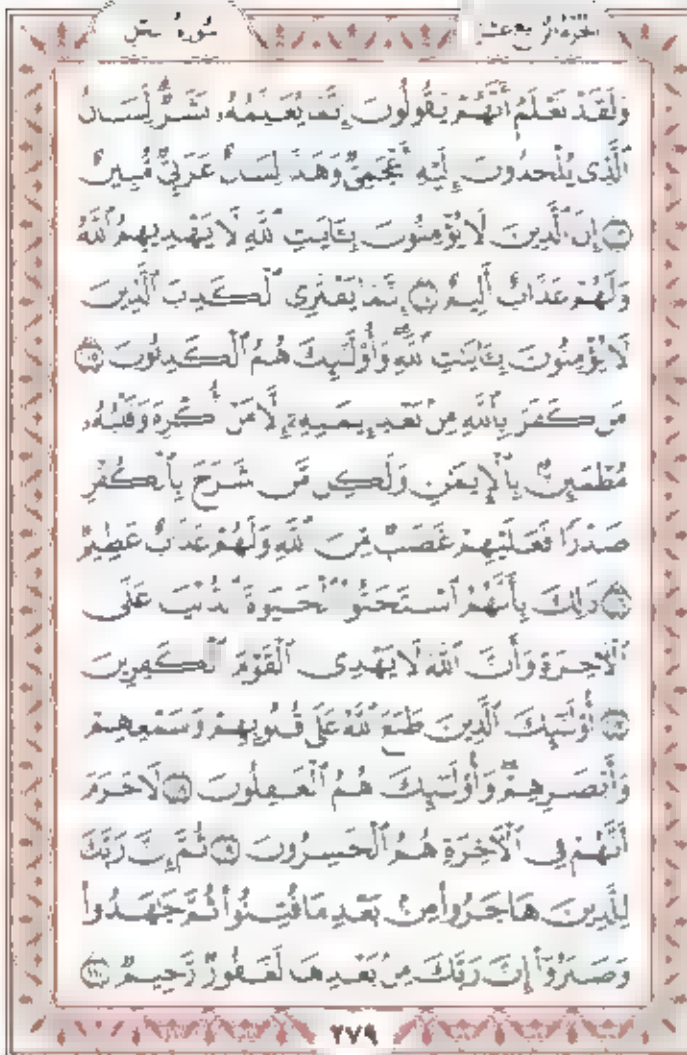 الجزء الرابع عشر سورة النحل
وَلَقَدْ نَعْلَمُ أَنَّهُمْ يَقُولُونَ إِنَّمَا يُعَلِّمُهُ بَشَرٌ لِّسَانُ
ٱلَّذِي يُلْحِدُونَ إِلَيْهِ أَعْجَمِيٌّ وَهَٰذَا لِسَانٌ عَرَبِيٌّ مُّبِينٌ
١٠٣ إِنَّ ٱلَّذِينَ لَا يُؤْمِنُونَ بِـَٔايَٰتِ ٱللَّهِ لَا يَهْدِيهِمُ ٱللَّهُ
وَلَهُمْ عَذَابٌ أَلِيمٌ ١٠٤ إِنَّمَا يَفْتَرِي ٱلْكَذِبَ ٱلَّذِينَ
لَا يُؤْمِنُونَ بِـَٔايَٰتِ ٱللَّهِ وَأُو۟لَٰٓئِكَ هُمُ ٱلْكَٰذِبُونَ ١٠٥
مَن كَفَرَ بِٱللَّهِ مِنۢ بَعْدِ إِيمَٰنِهِۦٓ إِلَّا مَنْ أُكْرِهَ وَقَلْبُهُۥ
مُطْمَئِنٌّۢ بِٱلْإِيمَٰنِ وَلَٰكِن مَّن شَرَحَ بِٱلْكُفْرِ
صَدْرًا فَعَلَيْهِمْ غَضَبٌ مِّنَ ٱللَّهِ وَلَهُمْ عَذَابٌ عَظِيمٌ
١٠٦ ذَٰلِكَ بِأَنَّهُمُ ٱسْتَحَبُّوا۟ ٱلْحَيَوٰةَ ٱلدُّنْيَا عَلَى
ٱلْـَٔاخِرَةِ وَأَنَّ ٱللَّهَ لَا يَهْدِى ٱلْقَوْمَ ٱلْكَٰفِرِينَ
١٠٧ أُو۟لَٰٓئِكَ ٱلَّذِينَ طَبَعَ ٱللَّهُ عَلَىٰ قُلُوبِهِمْ وَسَمْعِهِمْ
وَأَبْصَٰرِهِمْ وَأُو۟لَٰٓئِكَ هُمُ ٱلْغَٰفِلُونَ ١٠٨ لَا جَرَمَ
أَنَّهُمْ فِى ٱلْـَٔاخِرَةِ هُمُ ٱلْخَٰسِرُونَ ١٠٩ ثُمَّ إِنَّ رَبَّكَ
لِلَّذِينَ هَاجَرُوا۟ مِنۢ بَعْدِ مَا فُتِنُوا۟ ثُمَّ جَٰهَدُوا۟
وَصَبَرُوٓا۟ إِنَّ رَبَّكَ مِنۢ بَعْدِهَا لَغَفُورٌ رَّحِيمٌ ١١٠
٢٧٩